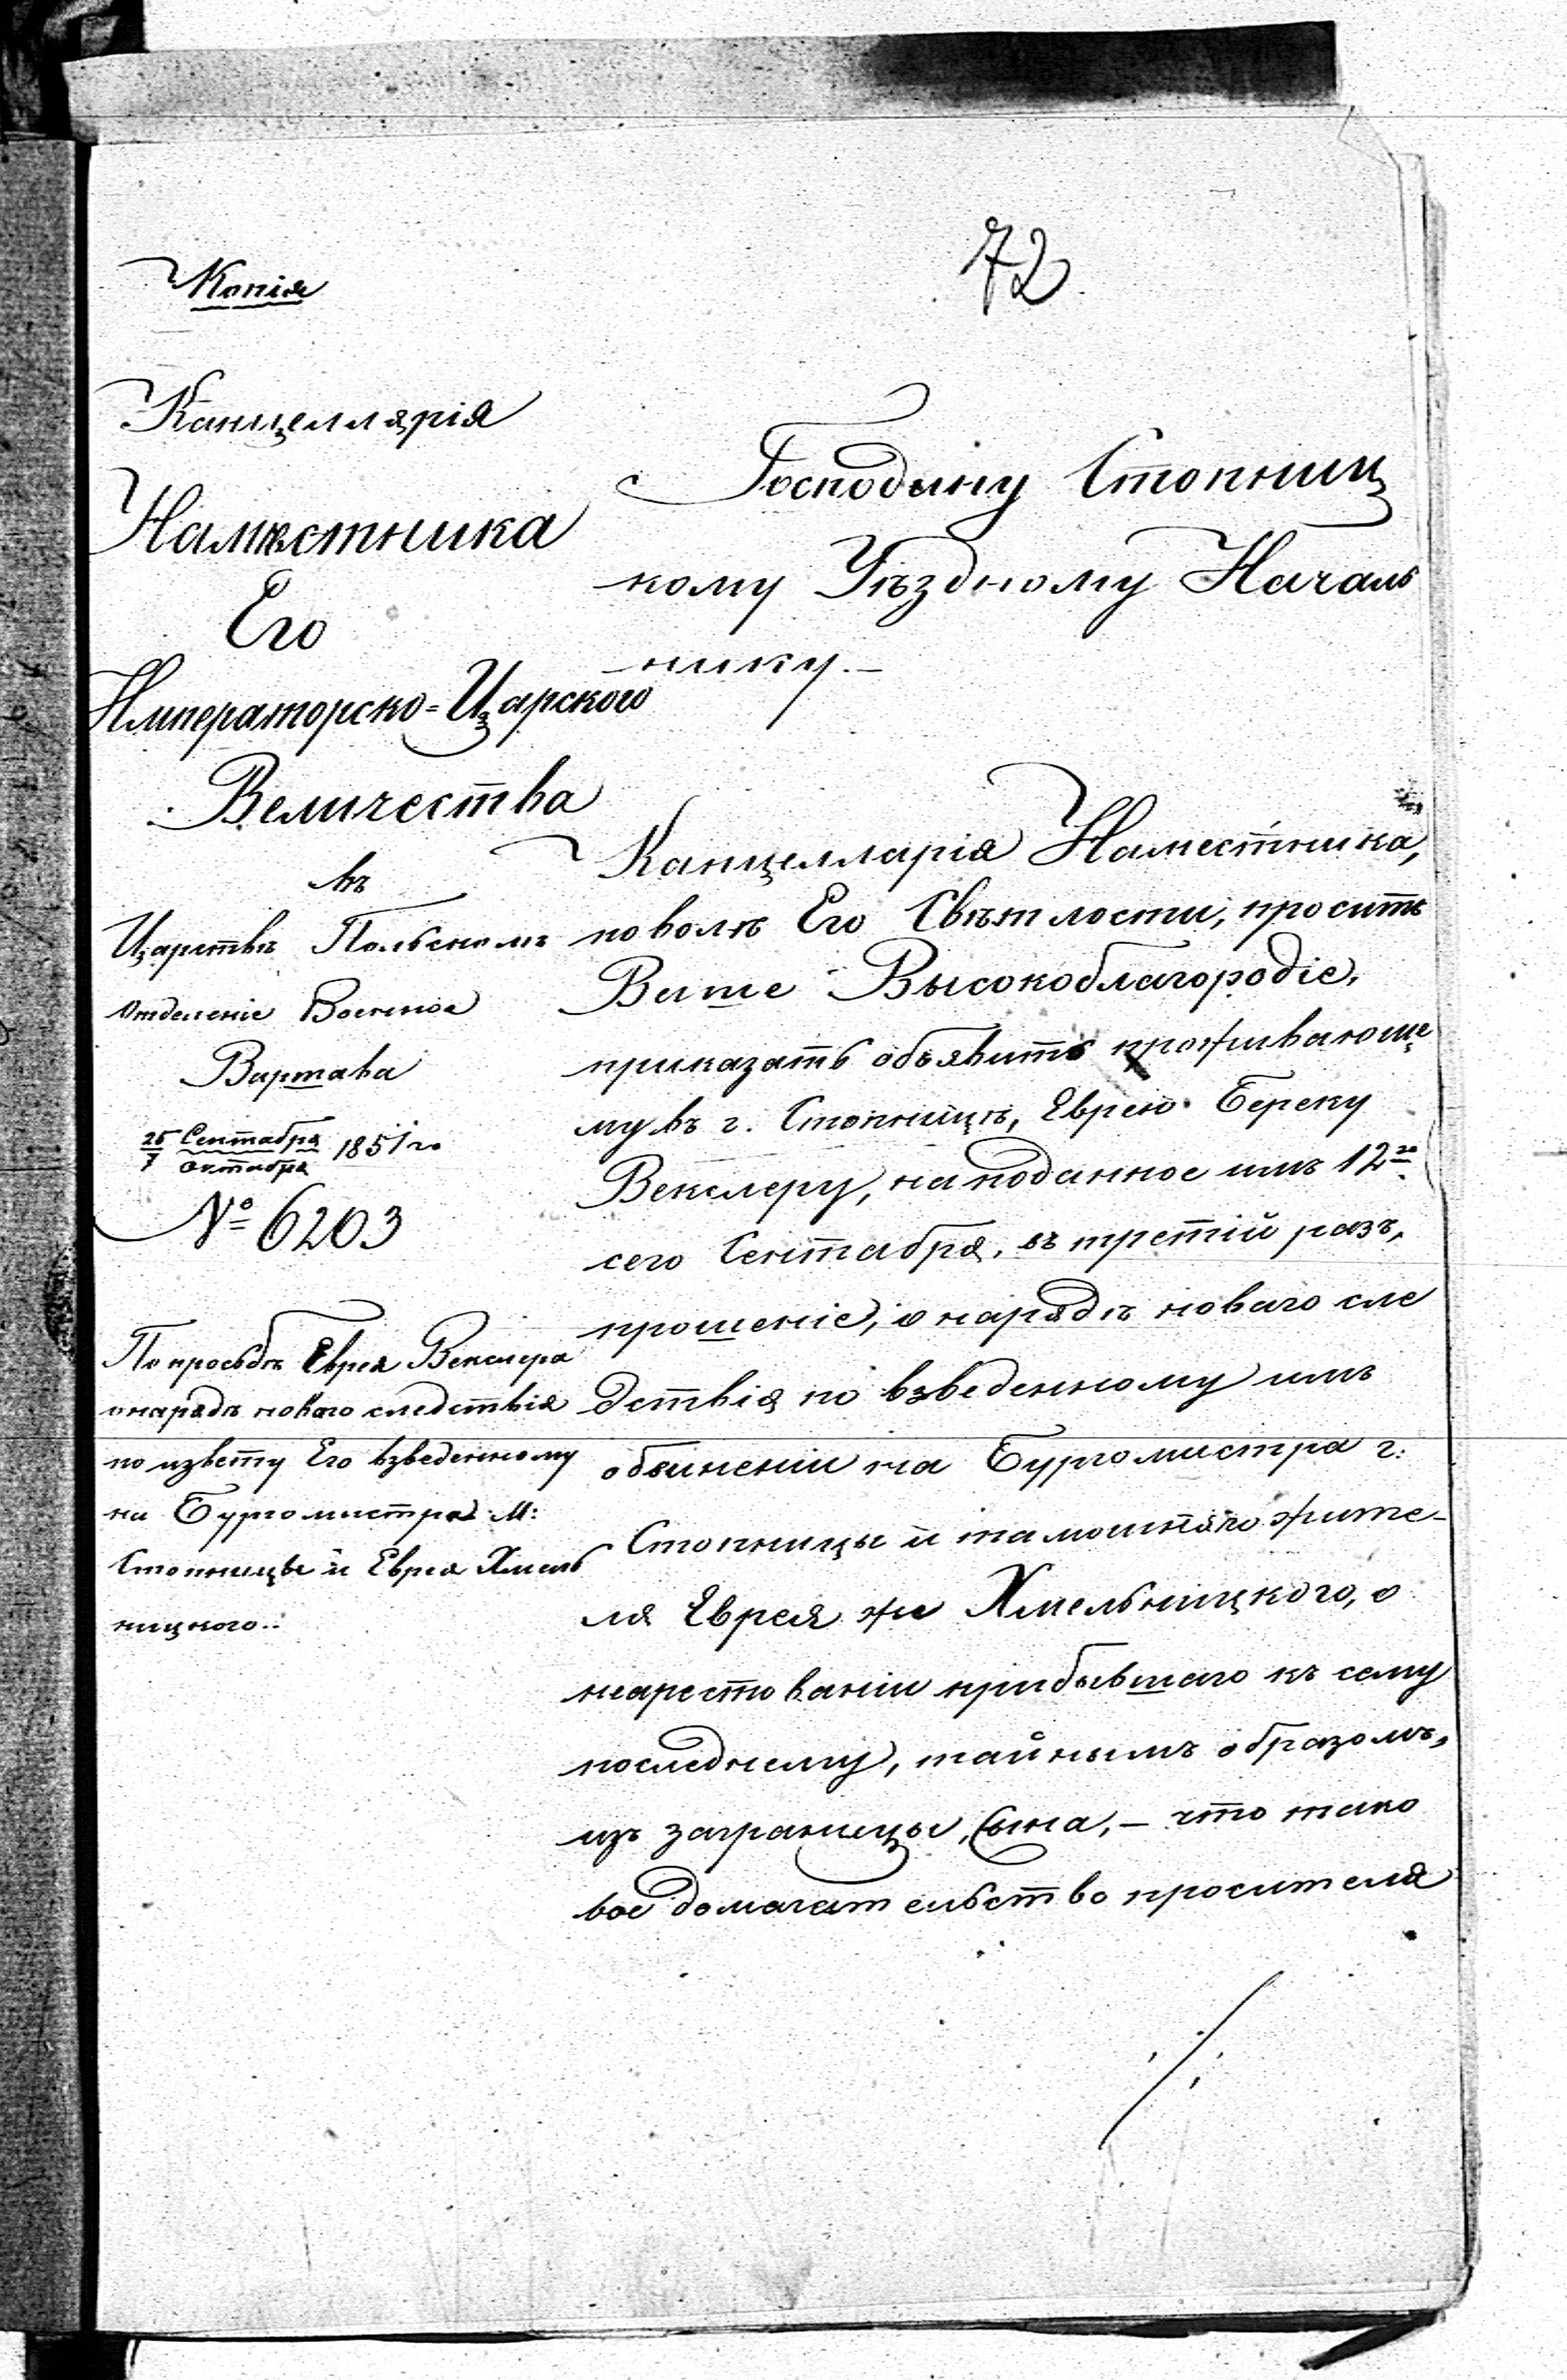 72
Копія
Канцеллярія
Намѣстника
Его
Императорско-Царского
Величества
въ
Царствѣ Польскомъ
Отделеніе Военное
Варшава
25 Сентабря
7 октабря 1851 го
№ 6203
По просьбѣ Еврея Векслера
о нарядѣ новаго следствія
по извету Его взведенному
на Бургомистра М:
Стопницы и Еврея Хмель
ницкого..
Господину Стопниц
кому Уѣздному Началь
нику.—
Канцеллярія Наместника,
по волѣ Его Свѣтлости, проситъ
Ваше Высокоблагородіе,
приказать объявить проживающе
му въ г. Стопницѣ, Еврею Береку
Векслеру, на поданное имъ 12го
сего Сентабря, въ третій разъ,
прошеніе, о нарядѣ новаго сле
дствія по взведенному имъ
обвиненіи на Бургомистра г:
Стопницы и тамошняго жите-
ля Еврея же Хмельницкого, о
неарестованіи прибывшаго къ сему
последнему, тайнымъ образомъ,
изъ заграницы, Сына, — что тако
вое домагательство просителя
./.